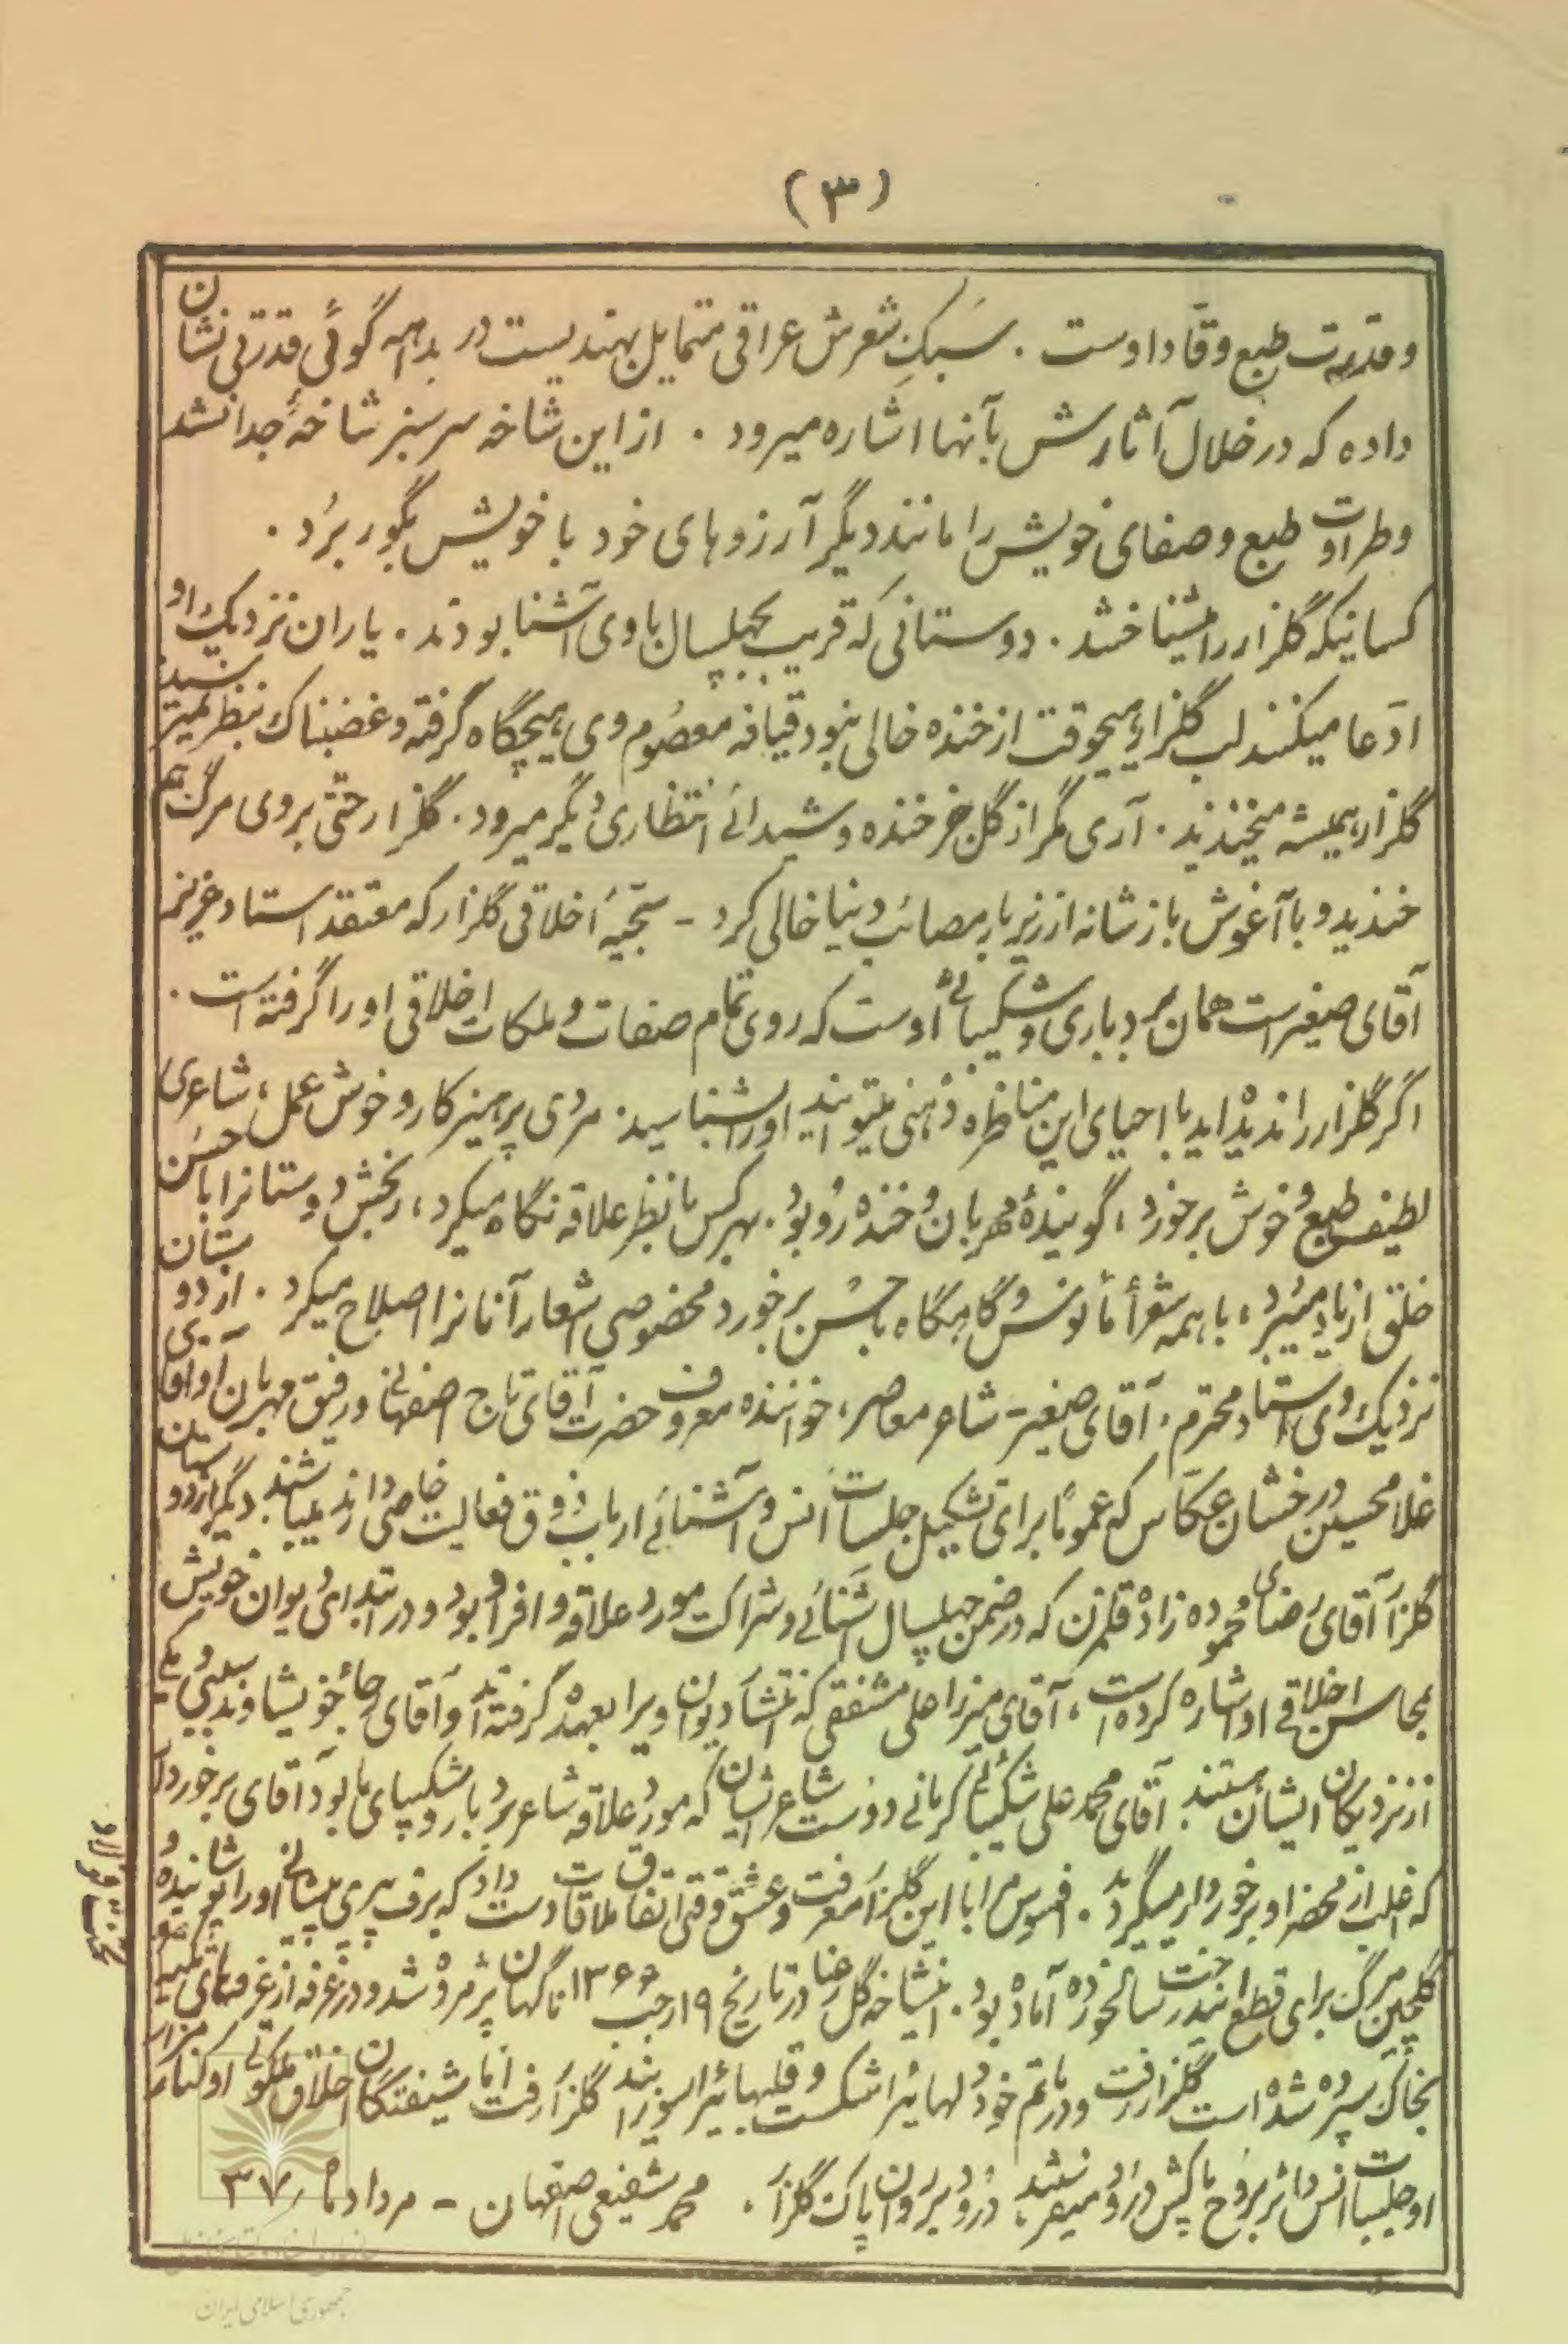 (۳)
وقدرت طبع وقّاد اوست . سَبکِ شعرش عراقی متمایل بهندیست در بداهه گوئی قدرتی نشان
داده که در خلال آثارش بآنها اشاره میرود . از این شاخه سرسبز شاخهٔ جدا نشد
وطراوت طبع وصفای خویش را مانند دیگر آرزوهای خود با خویش بگور بُرد .
کسانیکه گلزار را میشناختند . دوستانی که قریب بچهلسال با وی آشنا بودند . یاران نزدیک او
ادّعا میکنند لب گلزار هیچوقت از خنده خالی نبود قیافه معصُوم وی هیچگاه گرفته و غضبناک بنظر نمیرسید
گلزار همیشه میخندید . آری مگر از گل جز خنده و شیدائی انتظاری دیگر میرود . گلزار حتّی بروی مرگ هم
خندید و با آغوش باز شانه از زیر بار مصائب دنیا خالی کرد - سجیّهٔ اخلاقی گلزار که معتقد استاد عزیزم
آقای صغیر است همان بردباری و شکیبائی اوست که روی تمام صفات و ملکات اخلاقی او را گرفته است .
اگر گلزار را ندیده‌اید با احیای این مناظره ذهنی میتوانید او را بشناسید . مردی پرهیزکار و خوش عمل ، شاعری
لطیف طبع و خوش برخورد ، گویندهٔ مهربان و خنده رُو بود . بهر کس با نظر علاقه نگاه میکرد ، رنجش دوستانرا با حُسن
خلق از یاد میبُرد ، با همه شعرأ مأنوس و گاه بگاه با حُسن برخورد مخصوصی اشعار آنانرا اصلاح میکرد . از دوستان
نزدیک وی استاد محترم آقای صغیر - شاعر معاصر ، خواننده معروف حضرت آقای تاج اصفهانی و رفیق مهربان او آقای
غلامحسین درخشان عکّاس که عموماً برای تشکیل جلسات اُنس و آشنائی ارباب ذوق فعالیت خاصی دارند میباشند دیگر از دوستان
گلزار آقای رضای محموده زاده قلمزن که در ضمن چهلسال آشنائی و شراکت مورد علاقه وافر او بود و در ابتدای دیوان خویش
بمحاسن اخلاقی او اشاره کرده است ، آقای میرزا علی مشفقی که انتشار دیوان ویرا بعهده گرفته‌اند و آقای رجائی خویشاوند سببی وی که
از نزدیکان ایشان هستند . آقای محمد علی شکیبائی کرمانی دوست شاعر ایشان که مورد علاقه شاعر بردبار و شکیبای ما بود آقای برخوردار
که اغلب از محضر او برخوردار میگردید . افسوس مرا با این گلزار معرفت و عشق وقتی اتفاق ملاقات دست داد که برف پیری پیشانی او را پوشانیده و
گلچین مرگ برای قطع این درخت سالخورده آماده بود . این شاخه گل رعنا در تاریخ ۱۹ رجب ۱۳۶۶ ناگهان پژمرده شد و در غرفه از غرفه‌های تکیه
بخاک سپرده شده است گلزار رفت و در ماتم خود دلهائیرا شکست و قلبهائیرا سوزانید گلزار رفت امّا شیفتگان اخلاق ملکوتی او کنار مزار
او جلسات انس دائر بروح پاکش درود میفرستند ، درود بروان پاک گلزار . محمد شفیعی اصفهان - مرداد ماه ۳۷
جمهوری اسلامی ایران